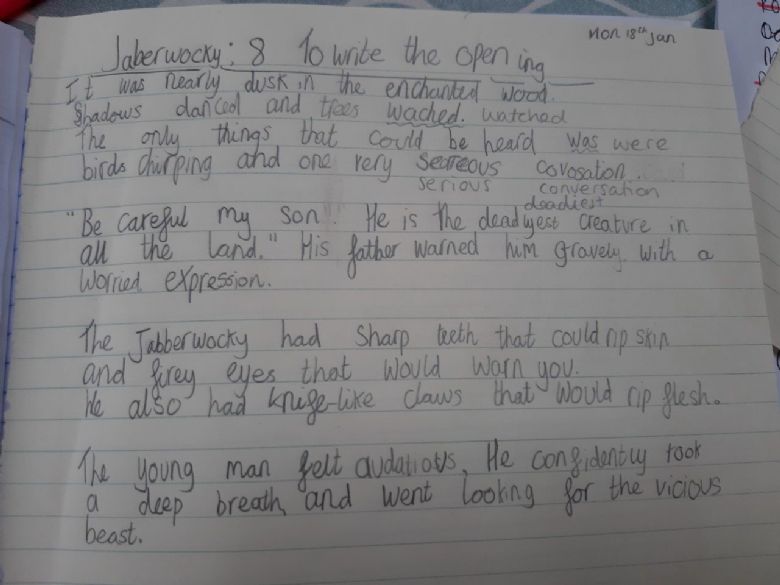 Mon 18th Jan
Jaberwocky: 8 To write the opening
It was nearly dusk in the enchanted wood.
Shadows danced and trees wached. watched
The only things that could be heard was were
birds chirping and one very sereeous covosation.
serious conversation
deadliest
"Be careful my son"! He is the deadlyest creature in
all the land." His father warned him gravely with a
worried expression.
The Jabberwocky had sharp teeth that could rip skin
and firey eyes that would warn you.
He also had knife-like claws that would rip flesh.
The young man felt audatiots. He confidently took
a deep breath and went looking for the vicious
beast.